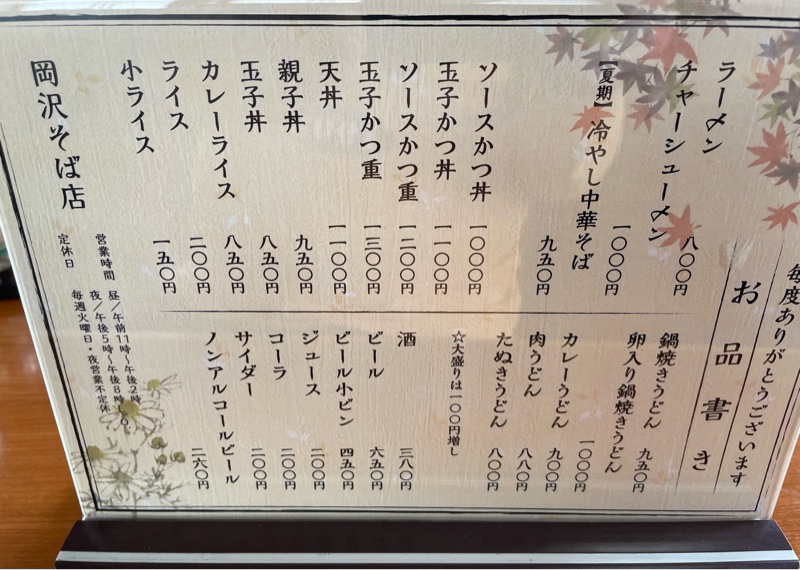 毎度ありがとうございます
お品書き
ラーメン 八〇〇円
チャーシューメン 一〇〇〇円
【夏期】冷やし中華そば 九五〇円
ソースかつ丼 一〇〇〇円
玉子かつ丼 一一〇〇円
ソースかつ重 一二〇〇円
玉子かつ重 一三〇〇円
天丼 一一〇〇円
親子丼 九五〇円
玉子丼 八五〇円
カレーライス 八五〇円
ライス 二〇〇円
小ライス 一五〇円
鍋焼きうどん 九五〇円
卵入り鍋焼きうどん 一〇〇〇円
カレーうどん 九〇〇円
肉うどん 八八〇円
たぬきうどん 八〇〇円
☆大盛りは一〇〇円増し
酒 三八〇円
ビール 六五〇円
ビール小ビン 四五〇円
ジュース 二〇〇円
コーラ 二〇〇円
サイダー 二〇〇円
ノンアルコールビール 二六〇円
岡沢そば店
営業時間 昼/午前11時〜午後2時
夜/午後5時〜午後8時
定休日 毎週火曜日・夜営業不定休